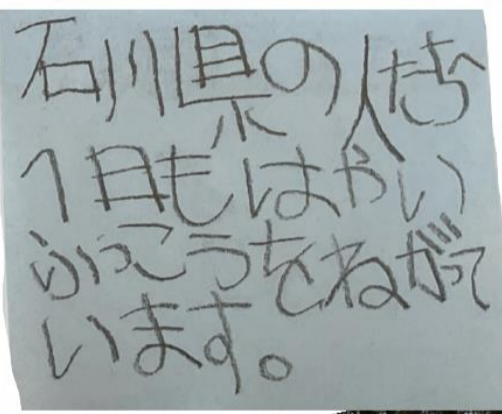 石川県の人たちへ
1日もはやい
ふっこうをねがって
います。